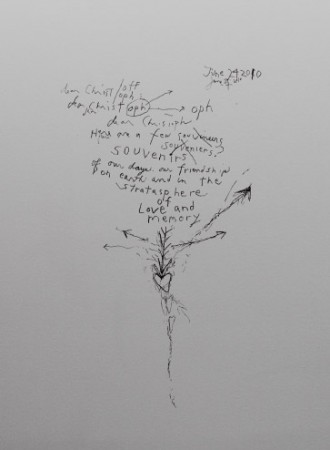 June 24 2010
dear Christ/off
oph
dear Christ oph → oph
dear Chrisoph
Here are a few souveneers
souveniers?
souvenirs
of our days our friendship
on earth and in the
stratasphere
of
Love and
memory